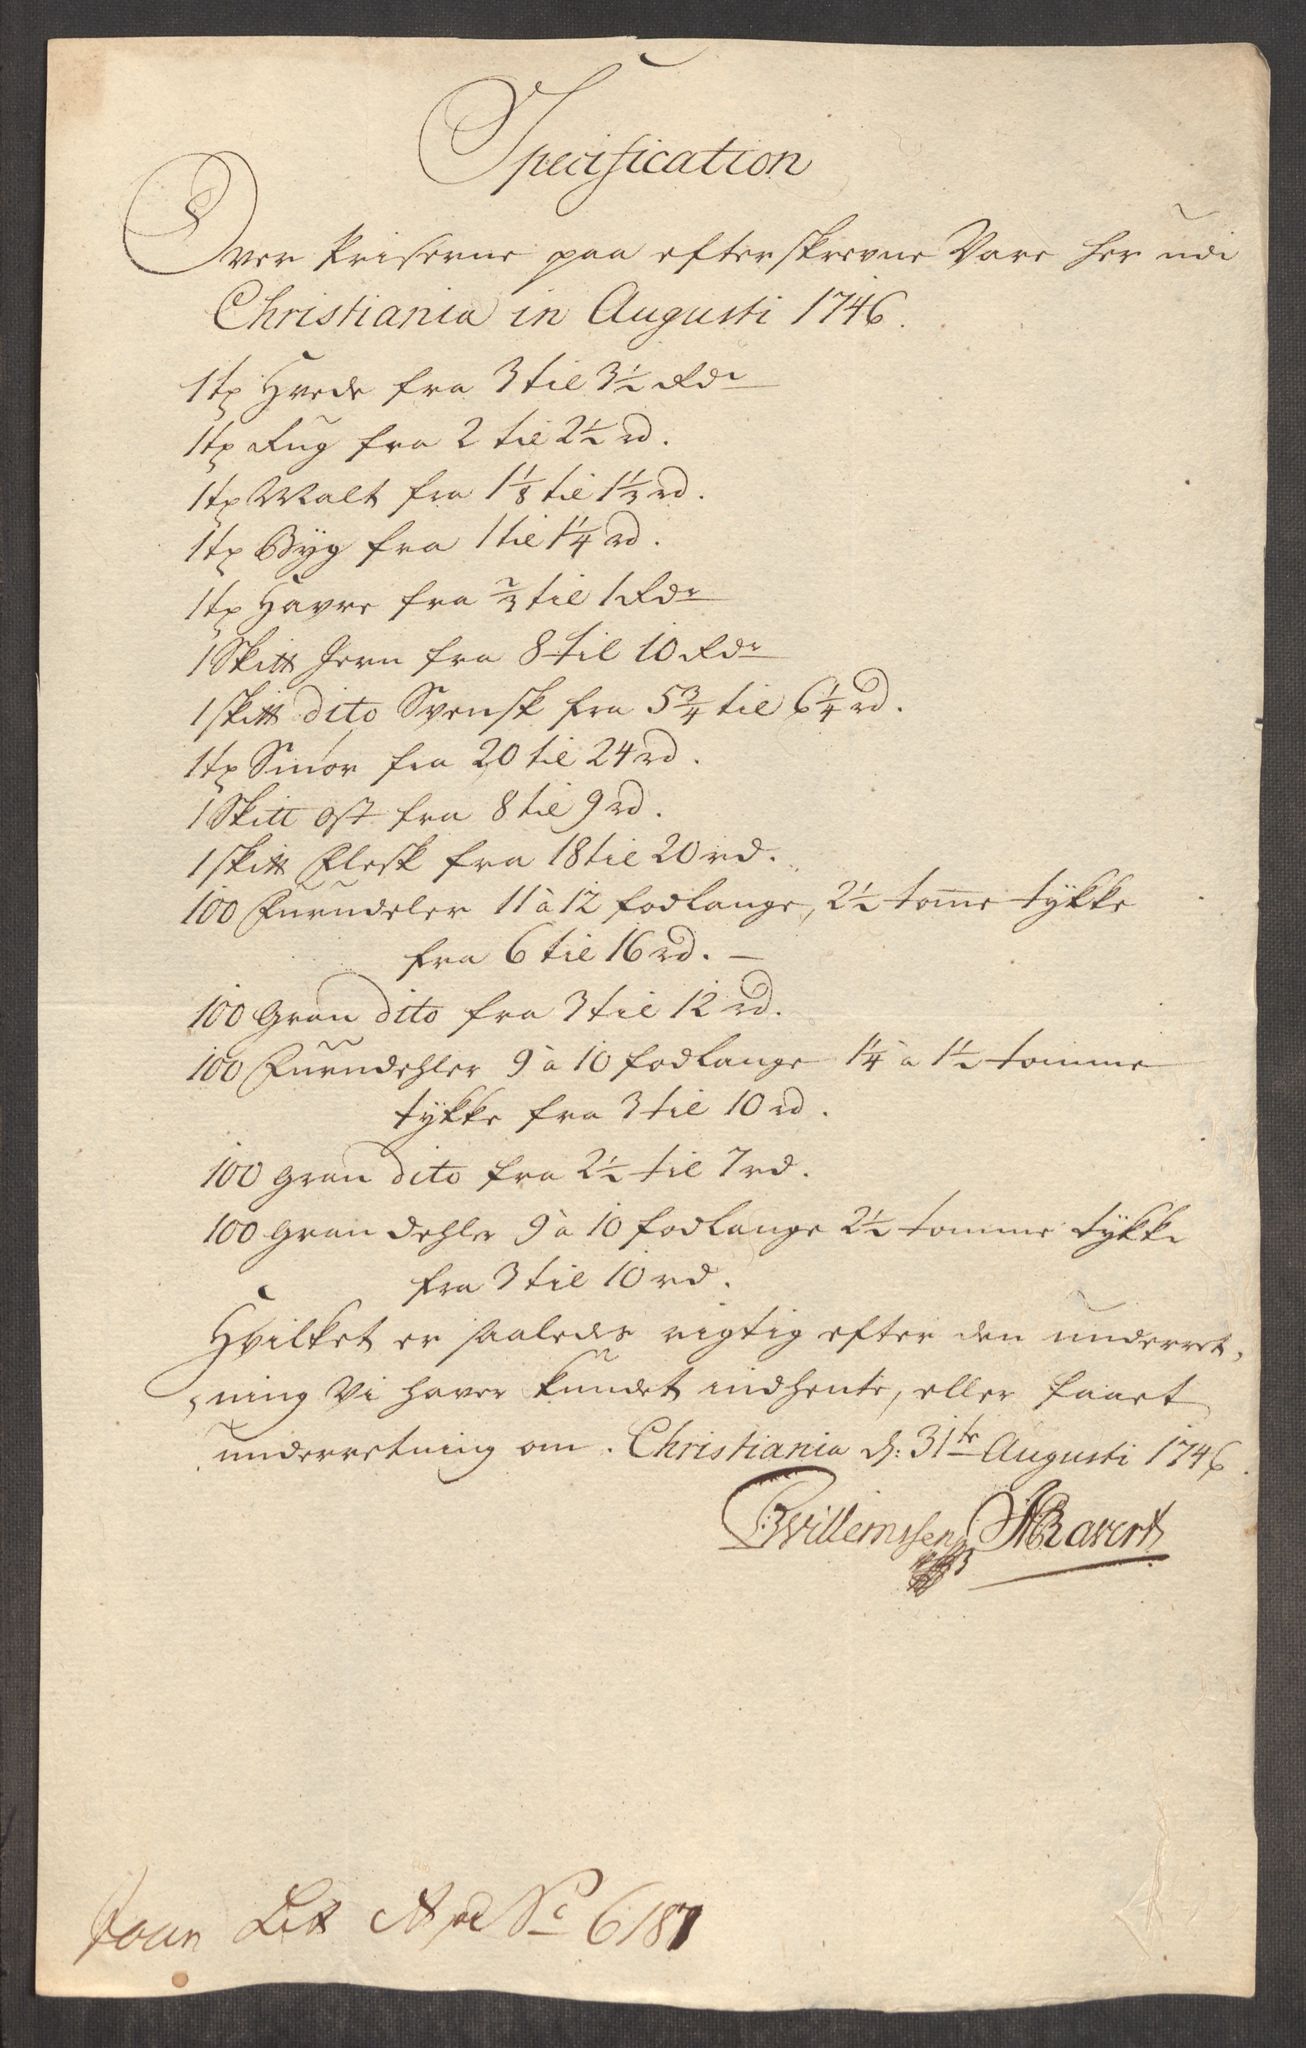 Specification
Over Priserne paa efterskrevne Vare her udi
Christiania in Augusti 1746.
1 tp Hvede fra 3 til 3 1/2 Rdr
1 tp Rug fra 2 til 2 1/2 rd.
1 tp Malt fra 1 1/8 til 1 1/3 rd.
1 tp Byg fra 1 til 1 1/4 rd.
1 tp Havre fra 2/3 til 1 Rdr
1 Skitt Jern fra 8 til 10 Rdr
1 skitt dito Svensk fra 5 3/4 til 6 1/4 rd.
1 tp Smør fra 20 til 24 rd.
1 Skitt ost fra 8 til 9 rd.
1 skitt Flesk fra 18 til 20 rd.
100 Furudeler 11 à 12 fodlange, 2 1/2 tome tykke
fra 6 til 16 rd. —
100 Gran dito fra 3 til 12 rd.
100 Furudehler 9 à 10 fodlange 1 1/4 à 1 1/2 tomme
tykke fra 3 til 10 rd.
100 gran dito fra 2 1/2 til 7 rd.
100 gran dehler 9 à 10 fodlange 2 1/2 tomme tykke
fra 3 til 10 rd.
Hvilket er saaledes rigtig efter den underret-
ning Vi haver kundet indhente, eller faaet
underretning om. Christiania d: 31te Augusti 1746.
Willemssen Ravert
Lit A No 6187